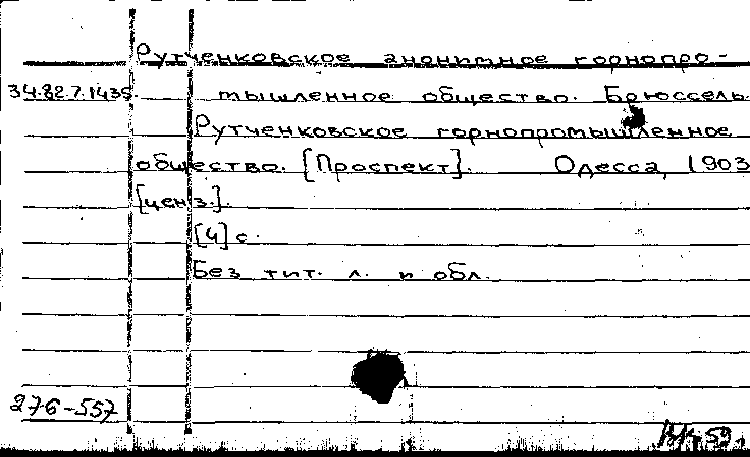 Рутченковское анонимное горнопро-
34.82.7.1435 мышленное общество. Брюссель.
Рутченковское горнопромышленное
общество. [Проспект]. Одесса, 1903
[ценз.].
[4] с.
Без тит. л. и обл.
276-557